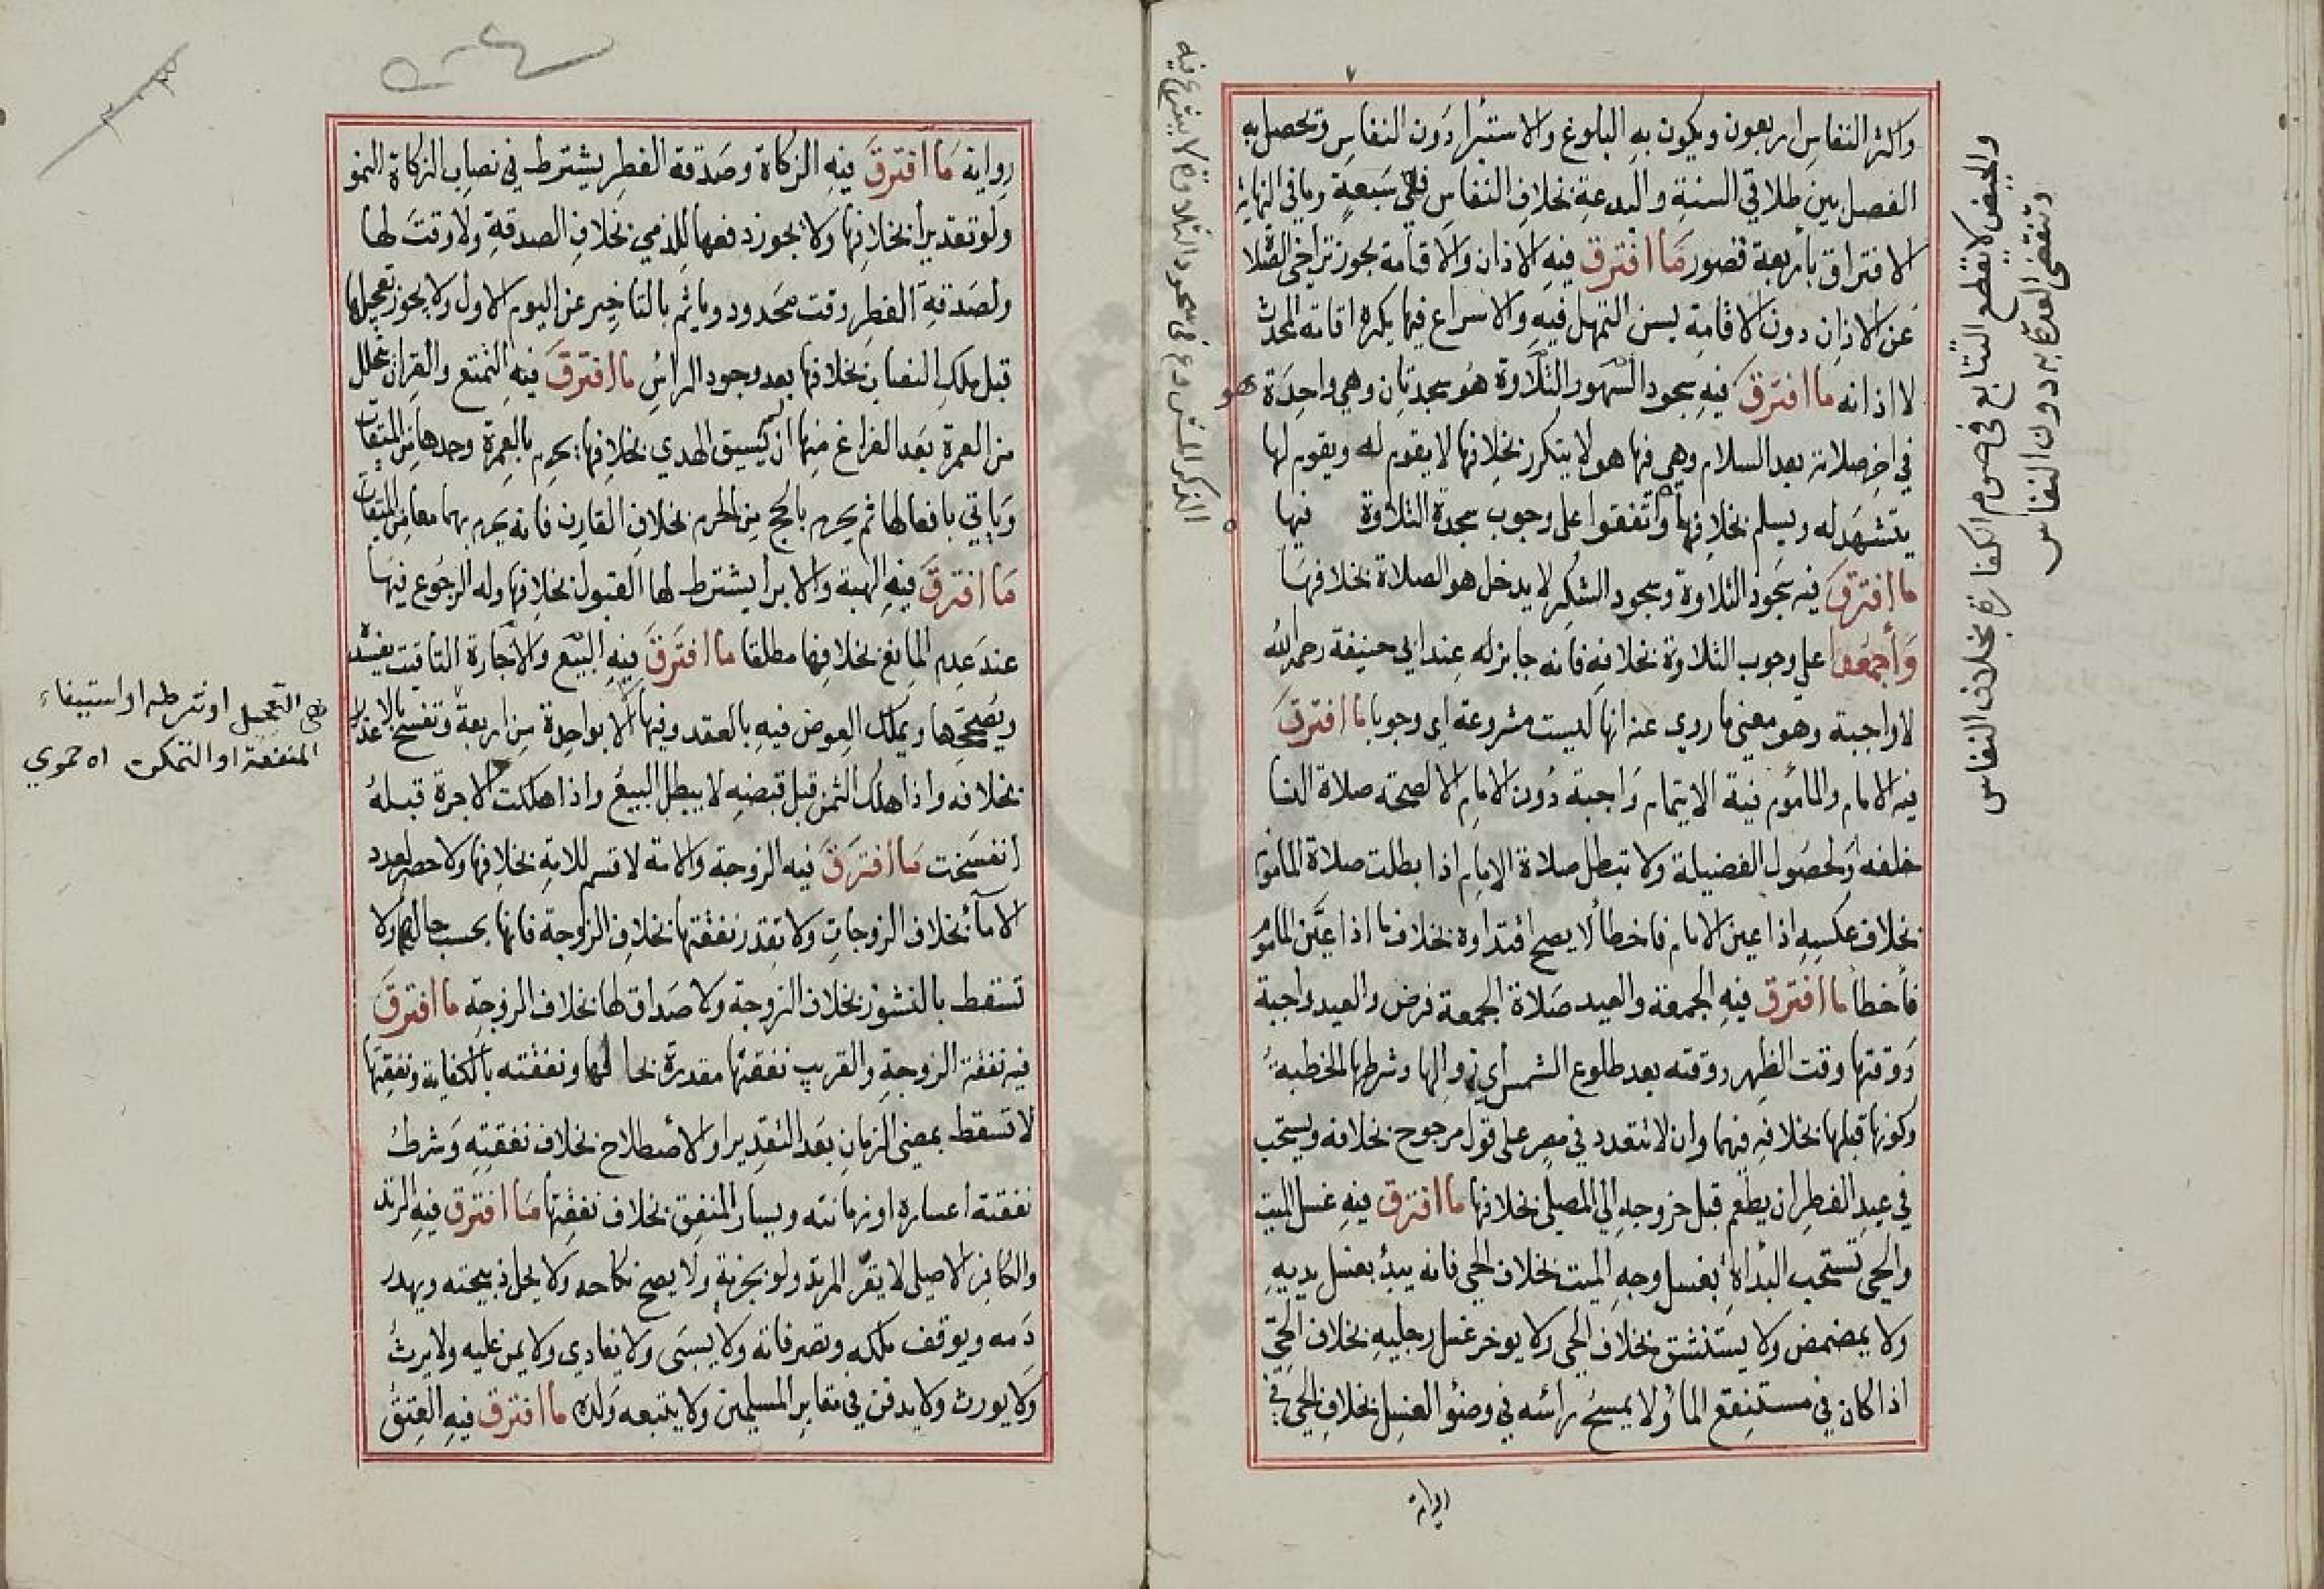 واكثر النفاس اربعون ويكون به البلوغ والاستبرا دون النفاس وتحصل به
الفصل بين طلاقي السنة والبدعة بخلاف النفاس فهي سبعة وما في النهاية
الافتراق بأربعة قصور ما افترق فيه الاذان والاقامة يجوز تراخي الصلا
عن الاذان دون الاقامة يسن التمهل فيه والاسراع فيها يكره اقامة المحدث
لا اذانه ما افترق فيه سجود السهو والتلاوة هو سجدتان وهي واحدة هو
في اخر صلاته بعد السلام وهي فيها هو لا يتكرر بخلافها لا يقوم له ويقوم لها
يتشهد له ويسلم بخلافها واتفقوا على وجوب سجدة التلاوة فيها
ما افترق فيه سجود التلاوة وسجود الشكر لا يدخل هو الصلاة بخلافها
وأجمعوا على وجوب التلاوة بخلافه فانه جايز له عند ابي حنيفة رحمه الله
لا واجبة وهو معنى ما روي عنه انها ليست مشروعة اي وجوبا ما افترق
فيه الامام والمأموم نية الايتمام واجبة دون الامام الا لصحة صلاة النسا
خلفه أو لحصول الفضيلة ولا تبطل صلاة الامام اذا بطلت صلاة الماموم
بخلاف عكسه اذا عين الامام فاخطأ لا يصح اقتداوه بخلاف ما اذا عين الماموم
فأخطأ ما افترق فيه الجمعة والعيد صلاة الجمعة فرض والعيد واجبة
ووقتها وقت الظهر ووقته بعد طلوع الشمس اي زوالها وشرطها الخطبة
وكونها قبلها بخلافه فيهما وان لا تتعدد في مصر على قول مرجوح بخلافه ويستحب
في عيد الفطر ان يطعم قبل خروجه الي المصلى بخلافها ما افترق فيه غسل الميت
والحي تستحب البدأة بغسل وجه الميت بخلاف الحي فانه يبدأ بغسل يديه
ولا يمضمض ولا يستنشق بخلاف الحي ولا يوخر غسل رجليه بخلاف الحي
اذا كان في مستنقع الماء ولا يمسح رأسه في وضوء الغسل بخلاف الحي في
رواية
والحيض لا يقطع التتابع في صوم الكفارة بخلاف النفاس
وتنقضي العدة به دون النفاس
الذكر المشروع في سجود التلاوة لا يشرع فيه
رواية ما افترق فيه الزكاة وصدقة الفطر يشترط في نصاب الزكاة النمو
ولو تقديرا بخلافها ولا يجوز دفعها للذمي بخلاف الصدقة ولا وقت لها
ولصدقة الفطر وقت محدود وياثم بالتاخير عن اليوم الاول ولا يجوز تعجيلها
قبل ملك النصاب بخلافها بعد وجود الراس ما افترق فيه التمتع والقران يتحلل
من العمرة بعد الفراغ منها ان لم يسق الهدي بخلافها يحرم بالعمرة وحدها من الميقات
وياتي بافعالها ثم يحرم بالحج من الحرم بخلاف القارن فانه يحرم بهما معا من الميقات
ما افترق فيه الهبة والابرا يشترط لها القبول بخلافها وله الرجوع فيها
عند عدم المانع بخلافها مطلقا ما افترق فيه البيع والاجارة التاقيت يفسده
ويصححها ويملك العوض فيه بالعقد وفيها لا الا بواحدة من اربعة وتفسخ بالاعذار
بخلافه واذا هلك الثمن قبل قبضه لا يبطل البيع واذا هلكت الاجرة قبله
انفسخت ما افترق فيه الزوجة والامة لا قسم للامة بخلافها ولا حصر لعدد
الاماء بخلاف الزوجات ولا تقدر نفقتها بخلاف الزوجة فانها بحسب حالهما ولا
تسقط بالنشوز بخلاف الزوجة ولا صداق لها بخلاف الزوجة ما افترق
فيه نفقة الزوجة والقريب نفقتها مقدرة بحالهما ونفقته بالكفاية ونفقتها
لا تسقط بمضي الزمان بعد التقدير او الاصطلاح بخلاف نفقته وشرط
نفقته اعساره او زمانته ويسار المنفق بخلاف نفقتها ما افترق فيه المرتد
والكافر الاصلي لا يقر المرتد ولو بجزية ولا يصح نكاحه ولا يحل ذبيحته ويهدر
دمه ويوقف ملكه وتصرفاته ولا يسبى ولا يفادي ولا يمن عليه ولا يرث
ولا يورث ولا يدفن في مقابر المسلمين ولا يتبعه ولده ما افترق فيه العتق
هي التعجيل او شرطه او استيفاء
المنفعة او التمكن اه حموي